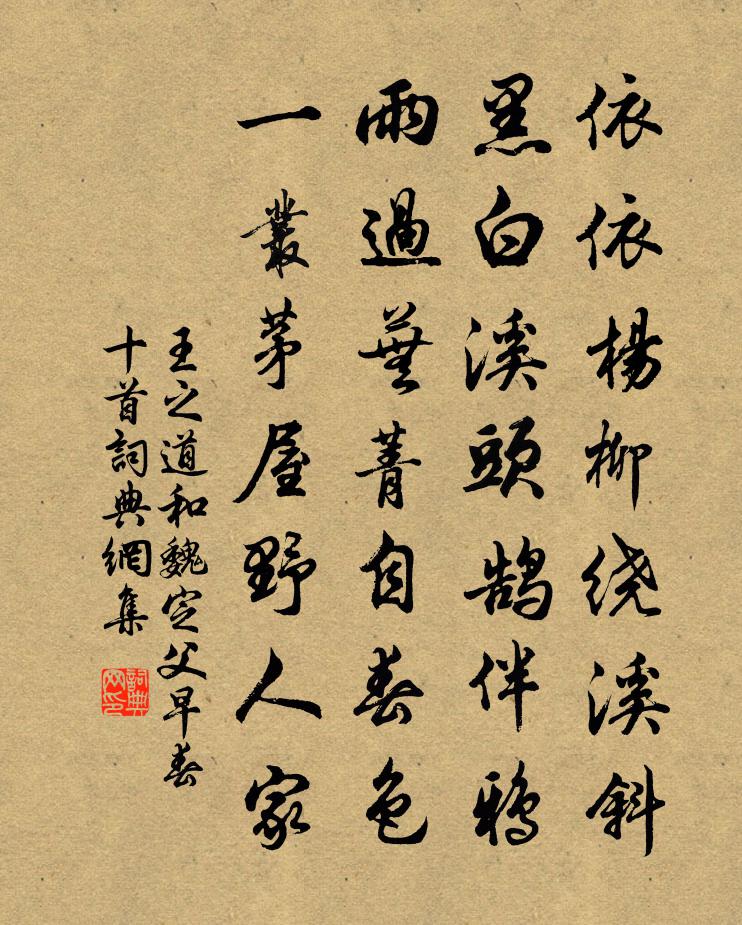 依依楊柳绕溪斜
黑白溪頭鹄伴鴉
雨過蕪菁自春色
一叢茅屋野人家
王之道和魏定父早春
十首詞典網集
詞典
网印